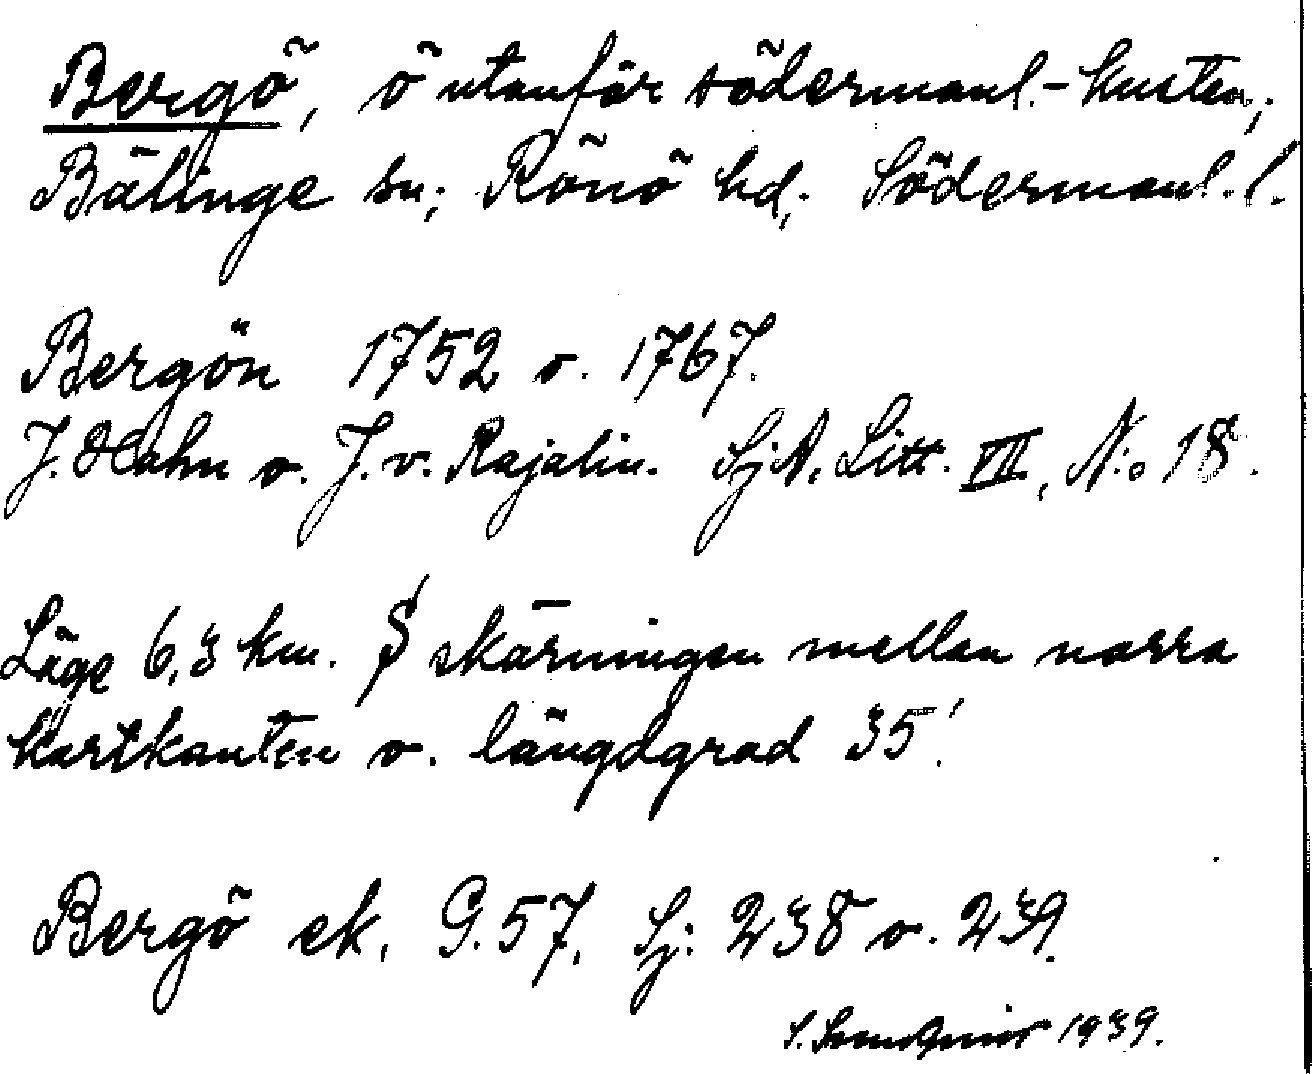 Bergö, ö utanför södermanl.-kusten;
Bälinge sn; Rönö hd; Södermanl. l.
Bergön 1752 o. 1767.
J. Hahn o. J. v. Rajalin. SjA. Litt. VII, N:o 18.
Läge 6,3 km. S skärningen mellan norra
kartkanten o. längdgrad 35'.
Bergö ek. G. 57. Sj: 238 o. 239.
S. 1939.